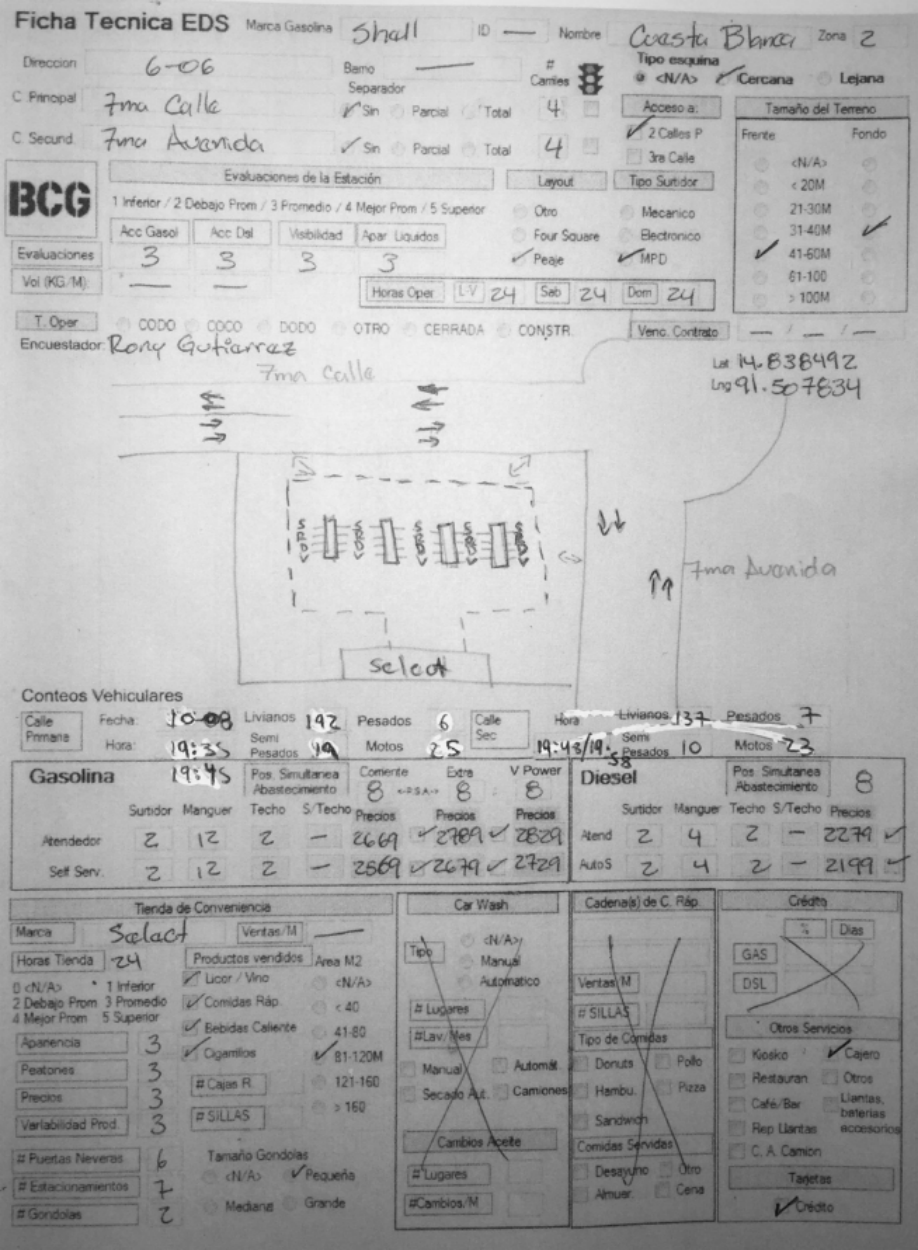 Ficha Tecnica EDS Marca Gasolina Shall ID — Nombre Cuesta Blanca Zona 2
Direccion 6-06 Barrio — # Carriles Tipo esquina <N/A> Cercana Lejana
C. Principal 7ma Calle Separador Sin Parcial Total 4 Acceso a: Tamaño del Terreno
C. Secund. 7ma Avanida Sin Parcial Total 4 2 Calles P Frente Fondo
3ra Calle <N/A>
BCG Evaluaciones de la Estación Layout Tipo Surtidor < 20M
1 Inferior / 2 Debajo Prom / 3 Promedio / 4 Mejor Prom / 5 Superior Otro Mecanico 21-30M
Acc Gasol Acc Dsl Visibilidad Apar Liquidos Four Square Electronico 31-40M
Evaluaciones 3 3 3 3 Peaje MPD 41-60M
Vol (KG/M) — — 61-100
Horas Oper L-V 24 Sab 24 Dom 24 > 100M
T. Oper CODO COCO DODO OTRO CERRADA CONSTR. Venc. Contrato — / — / —
Encuestador: Rony Gutiarraz
7ma Calle
Lat 14.838492
Lng 91.507834
7ma Avanida
Select
Conteos Vehiculares
Calle Primaria Fecha: 10-08 Livianos 192 Pesados 6 Calle Sec Hora Livianos 137 Pesados 7
Hora: 19:35 Semi Pesados 19 Motos 25 19:48/19:58 Semi Pesados 10 Motos 23
19:45
Gasolina Pos. Simultanea Abastecimiento Corriente 8 <-DSA-> Extra 8 V Power 8 Diesel Pos. Simultanea Abastecimiento 8
Surtidor Manguer Techo S/Techo Precios Precios Precios Surtidor Manguer Techo S/Techo Precios
Atendedor 2 12 2 — 2669 2789 2829 Atend 2 4 2 — 2279
Self Serv. 2 12 2 — 2569 2679 2729 AutoS 2 4 2 — 2199
Tienda de Conveniencia Car Wash Cadena(s) de C. Ráp. Crédito
Marca Select Ventas/M — Tipo <N/A> % Dias
Horas Tienda 24 Productos vendidos Area M2 Manual GAS
0 <N/A> * 1 Inferior Licor / Vino <N/A> Automatico Ventas/M DSL
2 Debajo Prom 3 Promedio Comidas Ráp. < 40 # Lugares # SILLAS
4 Mejor Prom 5 Superior Bebidas Caliente 41-80 #Lav/Mes Tipo de Comidas Otros Servicios
Apariencia 3 Cigarrillos 81-120M Manual Automát. Donuts Pollo Kiosko Cajero
Peatones 3 # Cajas R. 121-160 Secado Aut. Camiones Hambu. Pizza Restauran Otros
Precios 3 # SILLAS > 160 Sandwich Café/Bar Llantas, baterias accesorios
Variabilidad Prod. 3 Cambios Aceite Comidas Servidas Rep Llantas
# Puertas Neveras 6 Tamaño Gondolas # Lugares Desayuno Otro C. A. Camion
# Estacionamientos 7 <N/A> Pequeña #Cambios/M Almuer. Cena Tarjetas
# Gondolas 2 Mediana Grande Crédito